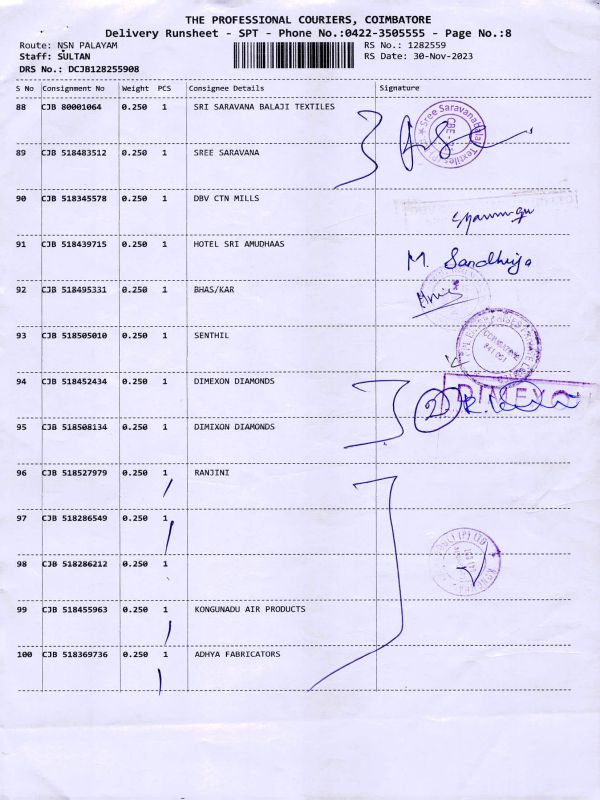 THE PROFESSIONAL COURIERS, COIMBATORE
Delivery Runsheet - SPT - Phone No.:0422-3505555 - Page No.:8
Route: NSN PALAYAM RS No.: 1282559
Staff: SULTAN RS Date: 30-Nov-2023
DRS No.: DCJB128255908
S No Consignment No Weight PCS Consignee Details Signature
88 CJB 80001064 0.250 1 SRI SARAVANA BALAJI TEXTILES
89 CJB 518483512 0.250 1 SREE SARAVANA
90 CJB 518345578 0.250 1 DBV CTN MILLS
91 CJB 518439715 0.250 1 HOTEL SRI AMUDHAAS M. Sandhiya
92 CJB 518495331 0.250 1 BHAS/KAR
93 CJB 518505010 0.250 1 SENTHIL
94 CJB 518452434 0.250 1 DIMEXON DIAMONDS 2
95 CJB 518508134 0.250 1 DIMIXON DIAMONDS
96 CJB 518527979 0.250 1 RANJINI
97 CJB 518286549 0.250 1
98 CJB 518286212 0.250 1
99 CJB 518455963 0.250 1 KONGUNADU AIR PRODUCTS
100 CJB 518369736 0.250 1 ADHYA FABRICATORS